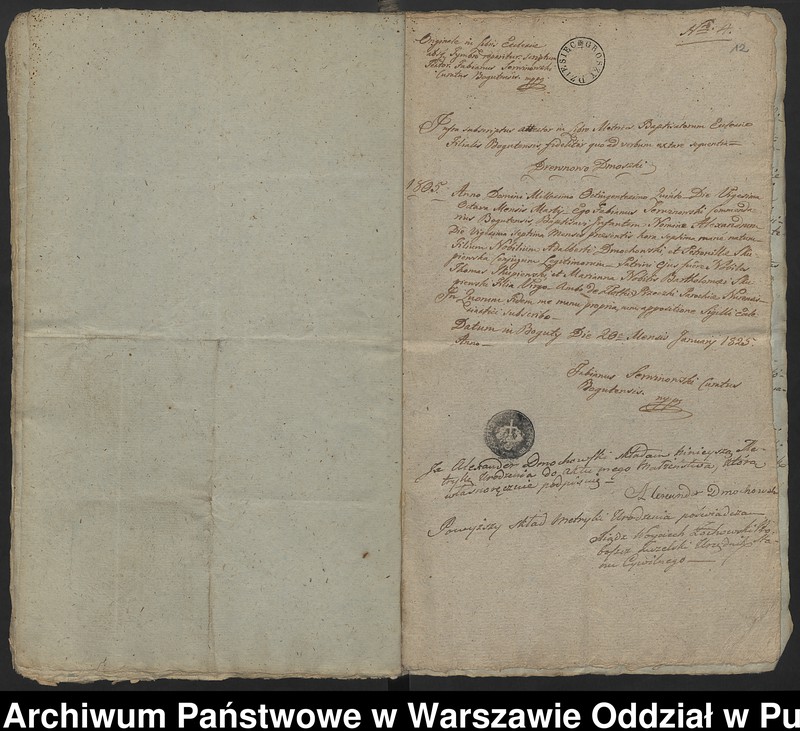 Nro 4.
12
DZIESIĘC GROSZY
Originale in Libris Ecclesiæ
absq Symbolo reperitur, scriptum
Testor. Fabianus Serwinowski
Curatus Bogutensis mppa
Infra subscriptus attestor in Libro Metrices Baptisatorum Ecclesiæ
Filialis Bogutensis, fideliter quo ad verbum extare sequentia
Drewnowo Dmoszki
1805. Anno Domini Millesimo Octingentesimo Quinto Die Vigesima
Octava Mensis Martij Ego Fabianus Serwinowski Commenda-
rius Bogutensis, Baptisavi Infantem Nomine Alexandrum
Die Vigesima Septima Mensis præsentis hora septima mane natum
Filium Nobilium Adalberti Dmochowski et Petronillæ Sku-
pienska Conjugum Legitimorum. Patrini ejus fuere Nobilis
Thomas Skupienski et Marianna Nobilis Bartholomei Sku-
pienski Filia Virgo Ambo de Złotki Parochiæ Nurensis
In Quorum fidem me manu propria, cum appositione Sigilli Eccle-
siastici subscribo
Datum in Boguty Die 20a Mensis January 1825.
Anno
Fabianus Serwinowski Curatus
Bogutensis.
mppa
Ja Alexander Dmochowski składam niniejszą Me-
trykę Urodzenia do aktu mego Małżeństwa, którą
własnoręcznie podpisuję
Alexander Dmochowski
Powyższy skład Metryki Urodzenia poświadcza
Xiądz Woyciech Żochowski Pro-
boszcz Urzędnik Sta-
nu Cywilnego
Archiwum Państwowe w Warszawie Oddział w Pu